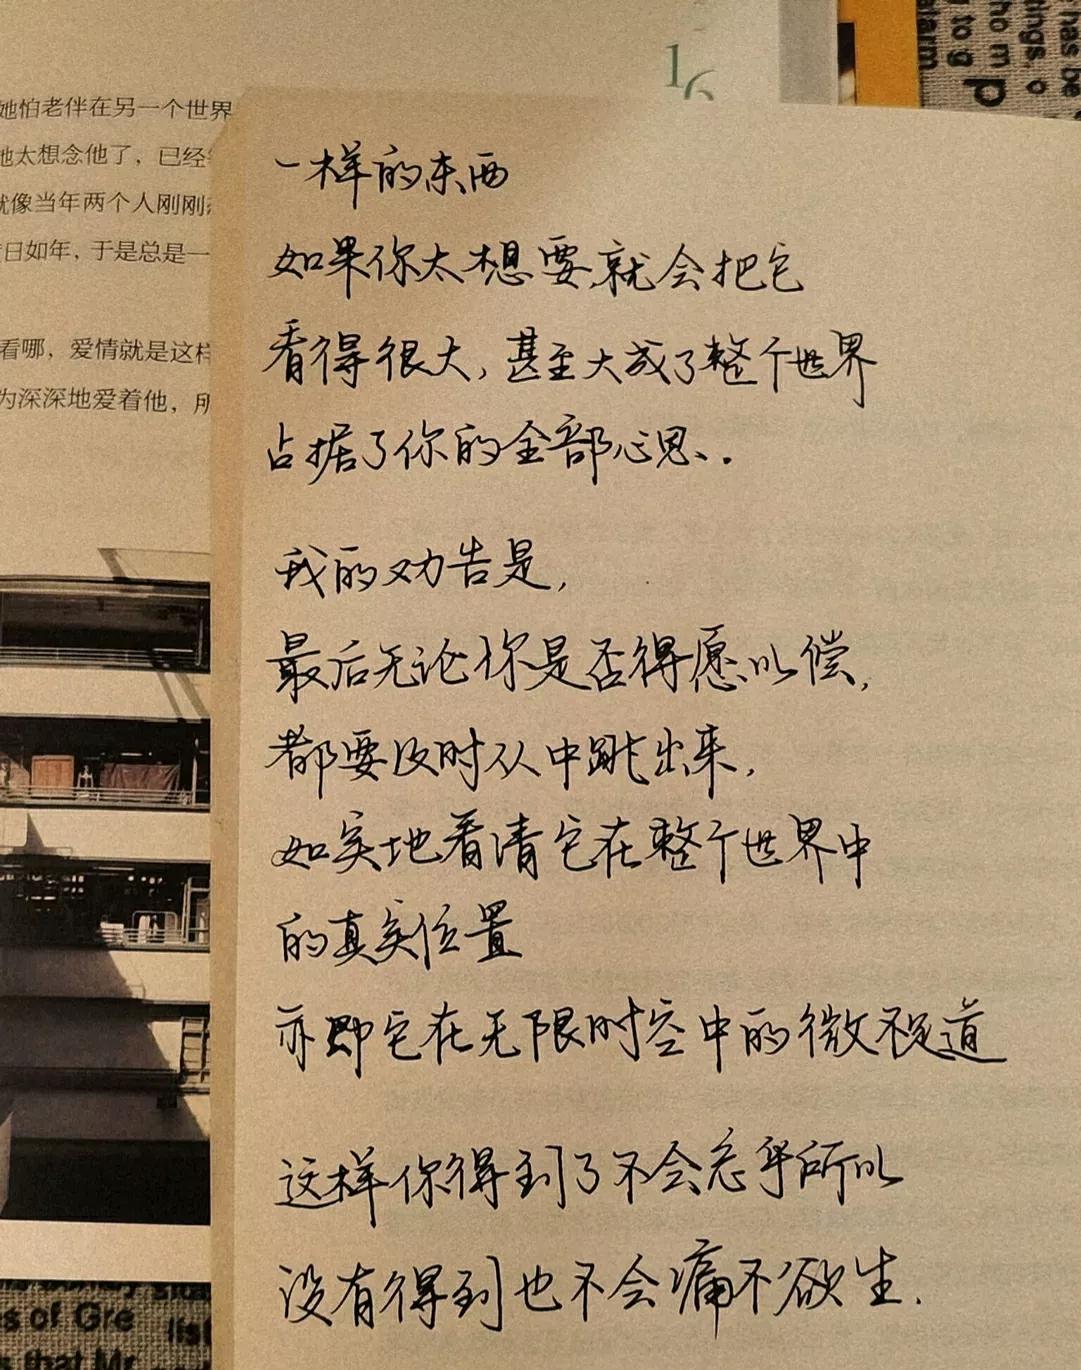 16
她怕老伴在另一个世界
她太想念他了，已经
就像当年两个人刚刚
日如年，于是总是一
看哪，爱情就是这样
为深深地爱着他，所
一样的东西
如果你太想要,就会把它
看得很大,甚至大成了整个世界
占据了你的全部心思、.
我的劝告是,
最后无论你是否得愿以偿,
都要及时从中跳出来,
如实地看清它在整个世界中
的真实位置
亦即它在无限时空中的微不足道
这样你得到了不会忘乎所以
没有得到也不会痛不欲生.
has be
tings, o
ho m
y to g
p
alarm
s of Gre
list
that Mr